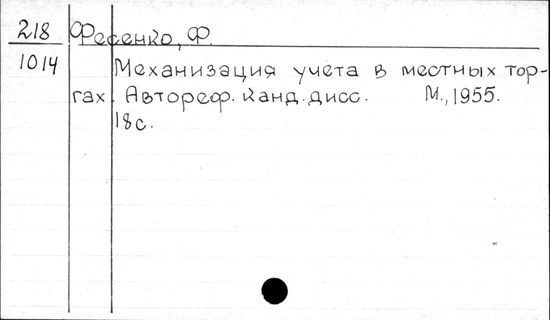 218 Фесенко, Ф.
1014 Механизация учета в местных тор-
гах. Автореф. канд. дисс. М., 1955.
18с.